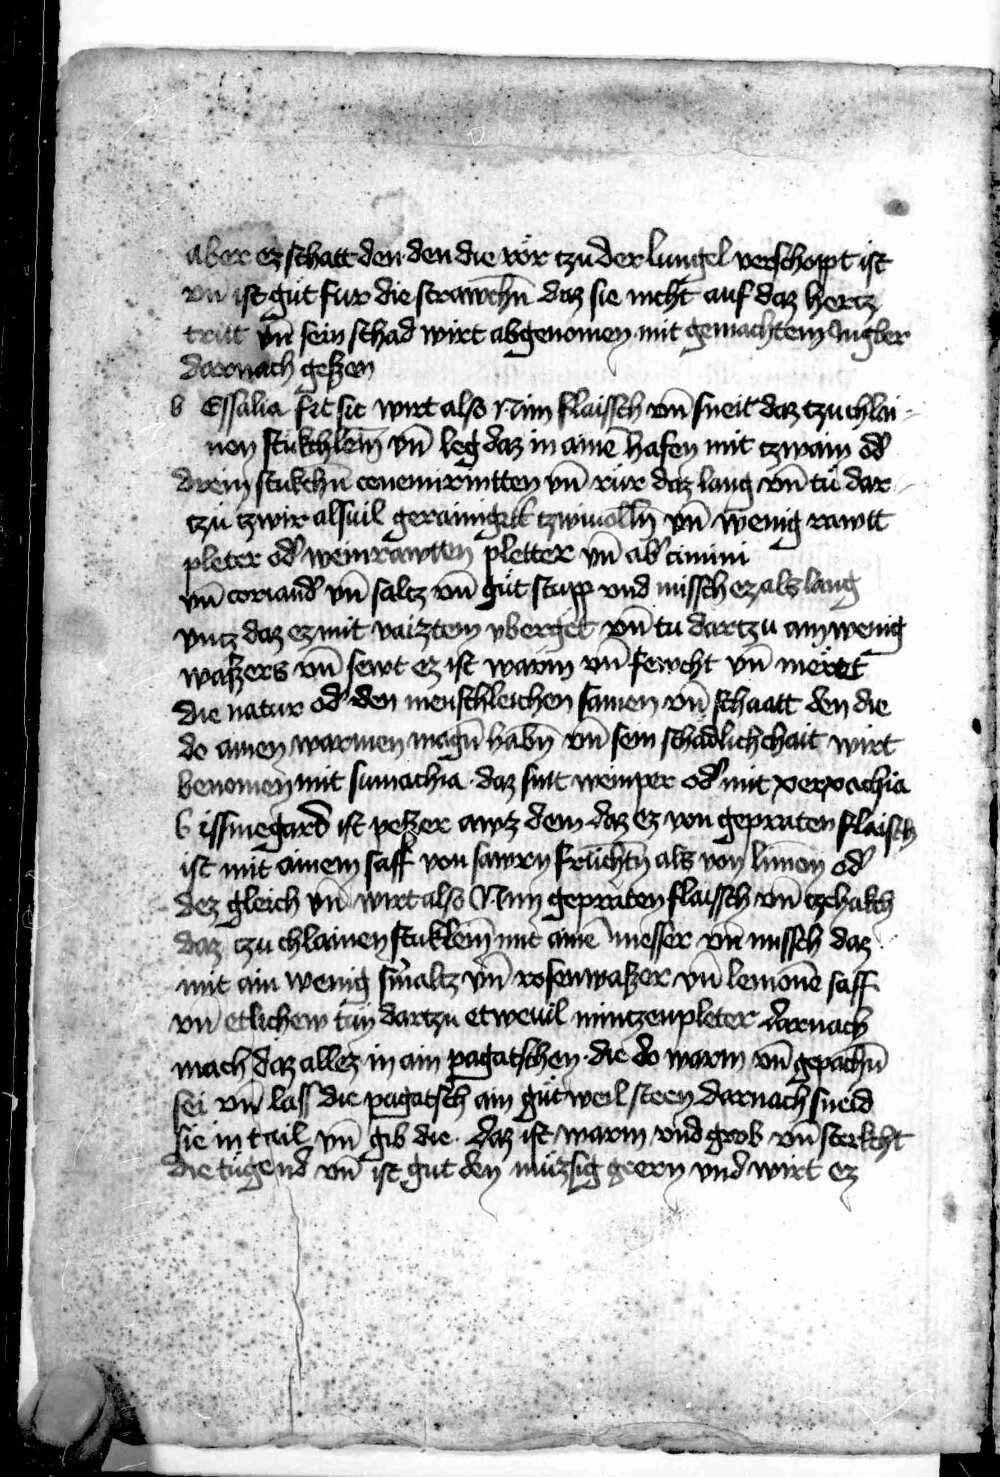 aber ez schatt den den die rör tzu der lungel verschoppt ist
vn̄ ist gůt fur die strawchn̄ daz sie nicht auf daz hertz
tritt vn̄ sein schad wirt abgenomen mit gemachtem Ingber
darnach geßen
b Essalia fit sic wirt also Nim flaissch vn̄ sneit daz tzu chlai-
nen stukchlem̄ vn̄ leg daz in aine hafen mit tzwain od̓
drein stukchn̄ cenemirintten vn̄ rür daz lang vn̄ tů dar-
tzů tzwir alsuil gerainigett tzwiuolln̄ vn̄ wenig rawtt
pleter od̓ weinrawtten pletter vn̄ ab̓ cimini
vn̄ coriand̓ vn̄ saltz vn̄ gůt stupp vnd missch ez als lang
vntz daz ez mit vaiztem vberget vn̄ tu dartzu ain wenig
waßers vn̄ sewt ez ist warm vn̄ fewcht vn̄ meret
die natur od̓ den menschleichen samen vn̄ schaatt den die
do ainen warmen magn̄ habn̄ vn̄ sein schadlichchait wirt
benomen mit sumachia daz sint wemper od̓ mit vervachia
b issinegard ist peßer awz dem daz ez von gepraten flaisch
ist mit ainem saff von sawrn früchtn̄ als von limon od̓
dez gleich vn̄ wirt also Nim gepraten flaissch vn̄ tzehakch
daz tzu chlainen stuklem̄ mit aine messer vn̄ missch daz
mit ain wenig smaltz vn̄ rosenwaßer vn̄ lemone saff
vn̄ etlichew tun dartzu etweuil mintzenpleter darnach
mach daz allez in ain pagatschen die do warm vn̄ gepachn̄
sei vn̄ lass die pagatsch ain gůt weil steen darnach sneid
sie in tail vn̄ gib die daz ist warm vnd grob vn̄ sterkcht
die tugend vn̄ ist gut den müzsig geern vnd wirt ez